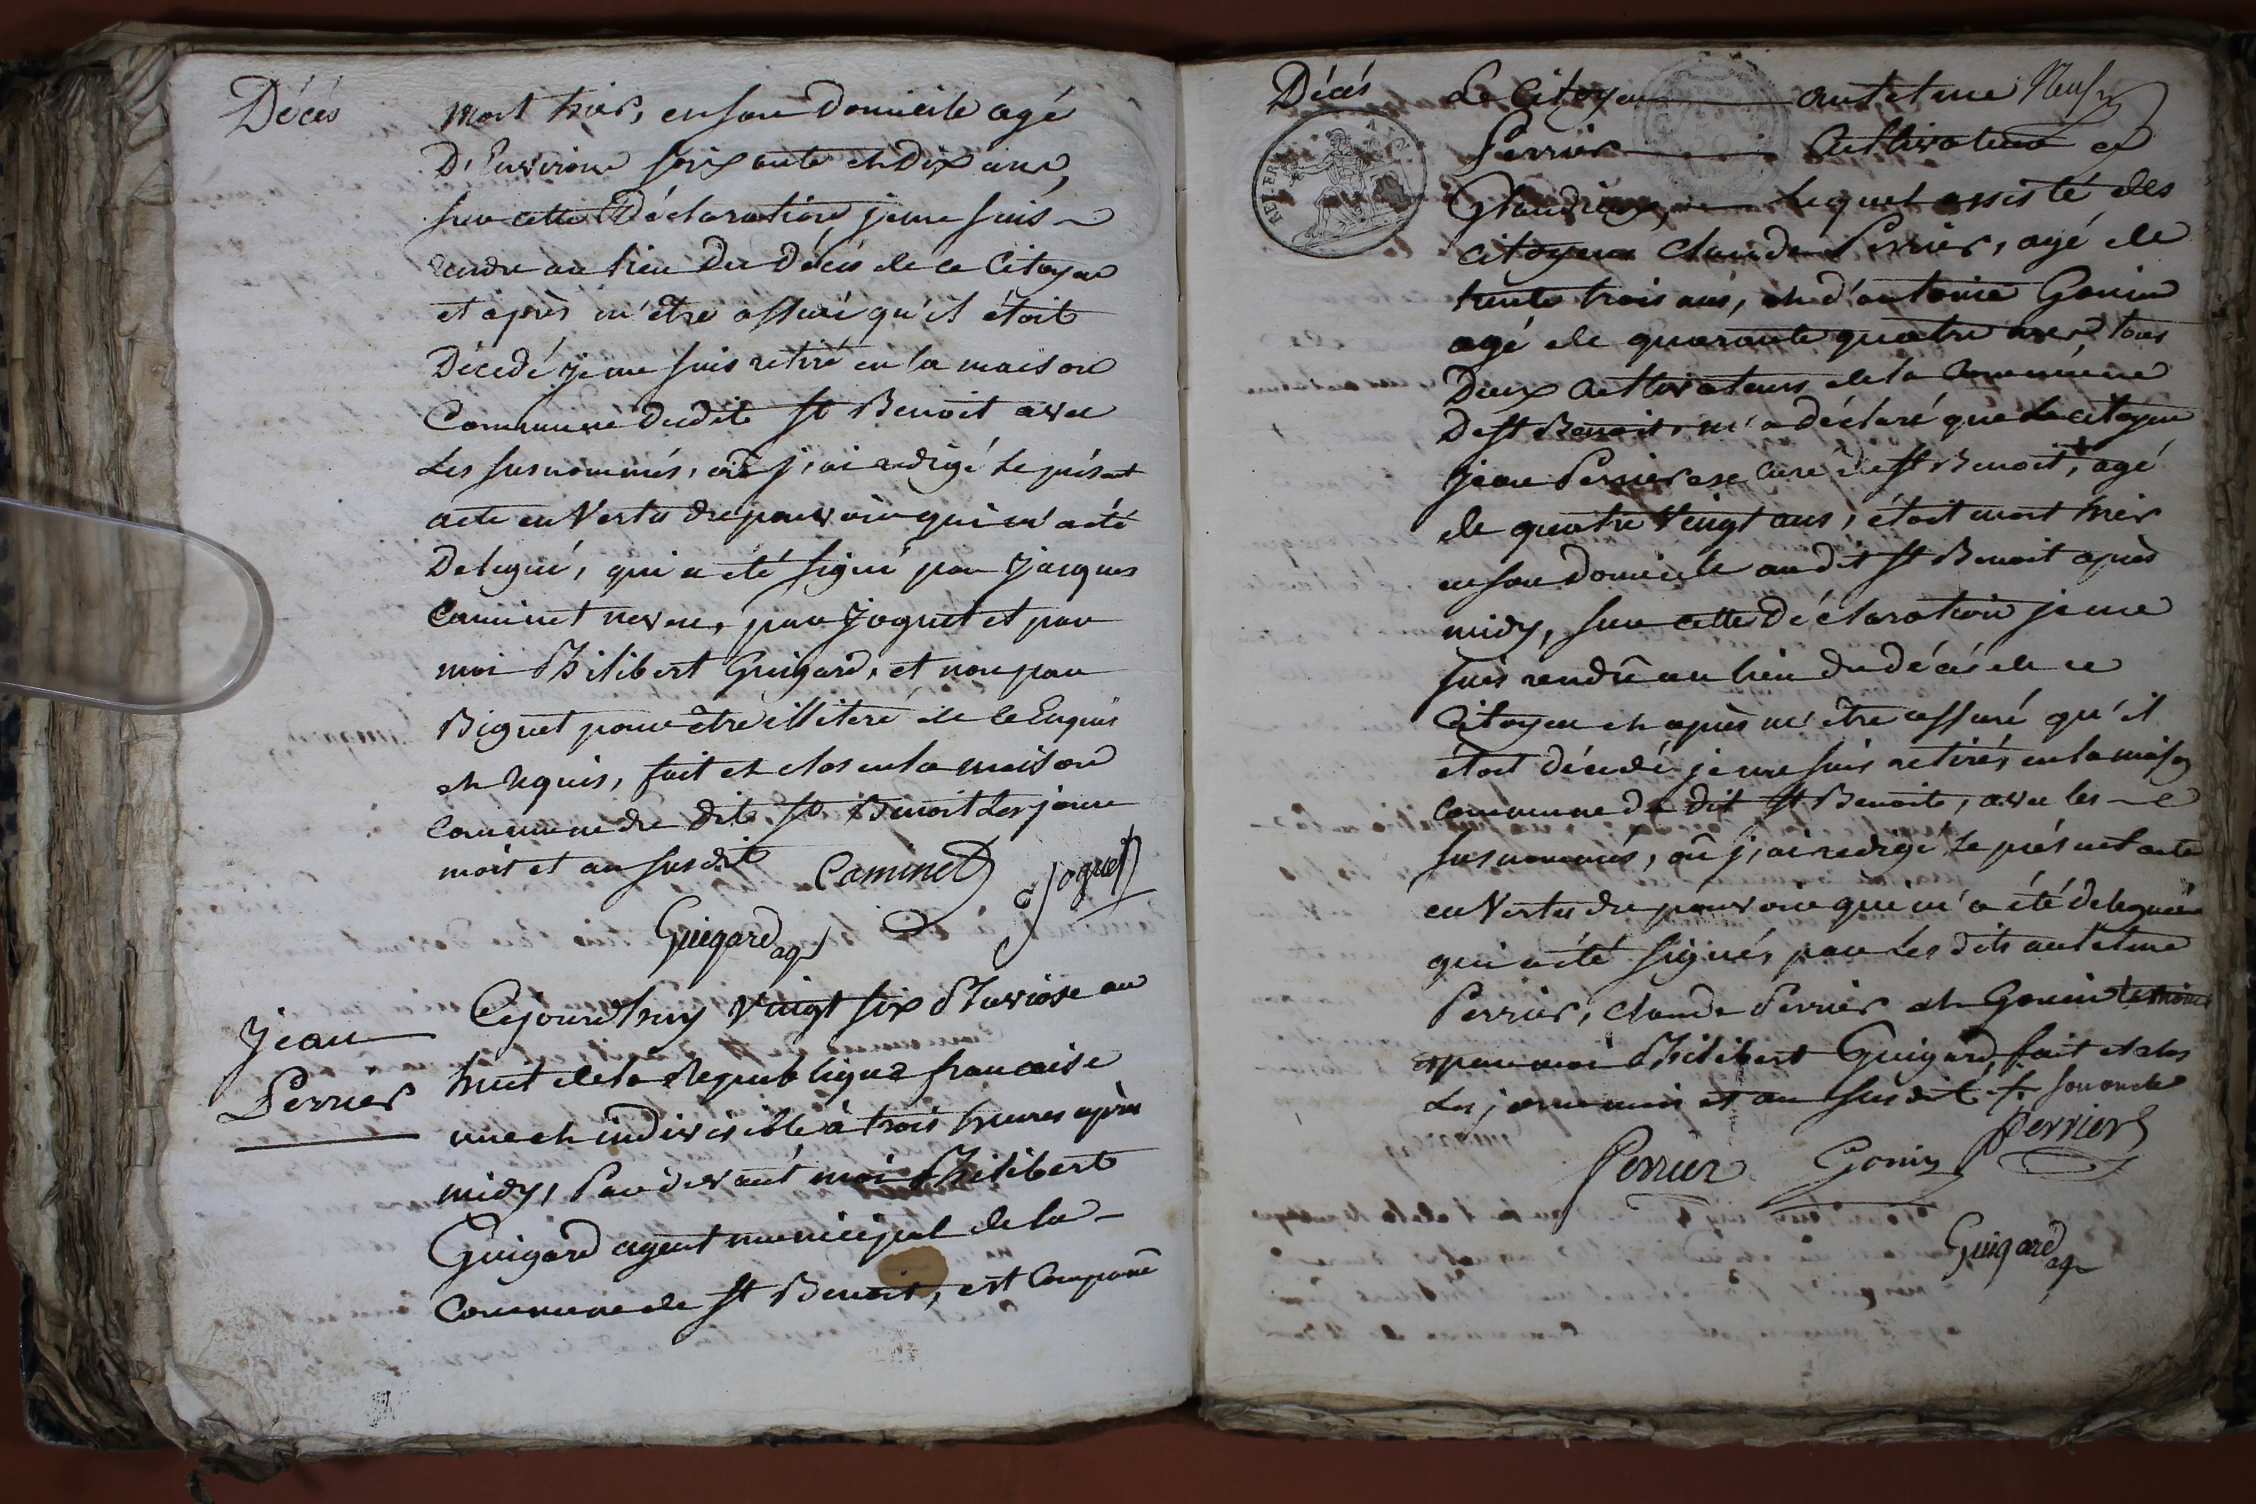 Décès
mort hier, en son domicile agé
D'Environ soixante et Dix ans,
sur cette Déclaration, je me suis
rendu au lieu Du Décès de ce Citoyen
et après m'être assuré qu'il étoit
Décedé je me suis retiré en la maison
Commune dudit St Benoit avec
Les susnommés, où j'ai redigé le présent
acte en Vertu du pouvoir qui m'a été
Delegué, qui a été signé par Jacques
Caminet neveu, par Joguet et par
moi Philibert Guigard, et non par
Biguet pour être illiteré de ce Enquis
et Requis, fait et clos en la maison
commune du dit St Benoit Les jour
mois et an susdit
Caminet
Joguet
Guigard ag
Jean
Perrier
Cejourd'huy Vingt six Pluviose an
huit de la Republique francaise
une et indivisible à trois heures après
midy, Par devant moi Philibert
Guigard agent municipal de la
Commune de St Benoit, est Comparu
Décès
Le Citoyen antelme
Perrier Cultivateur
Glandieux, Lequel assisté des
citoyens Claude Perrier, agé de
trente trois ans, et d'antoine Gonin
agé de quarante quatre ans, tous
Deux Cultivateurs de la Commune
De St Benoit, m'a déclaré que Le citoyen
Jean Perrier ex curé de St Benoit, agé
de quatre Vingt ans, étoit mort hier
en son Domicile audit St Benoit après
midy, sur cette Déclaration je me
suis rendu au lieu du décès de ce
Citoyen et après m'être assuré qu'il
étoit décedé je me suis retiré, en la maison
commune du dit St Benoit, avec les
susnommés, où j'ai redigé le présent acte
en Vertu du pouvoir qui m'a été delegué
qui a été signé, par Les dits antelme
Perrier, Claude Perrier et Gonin temoins
et par moi Philibert Guigard, fait et clos
Les jour mois et an susdit + son oncle
Perrier
Gonin
Perrier
Guigard ag